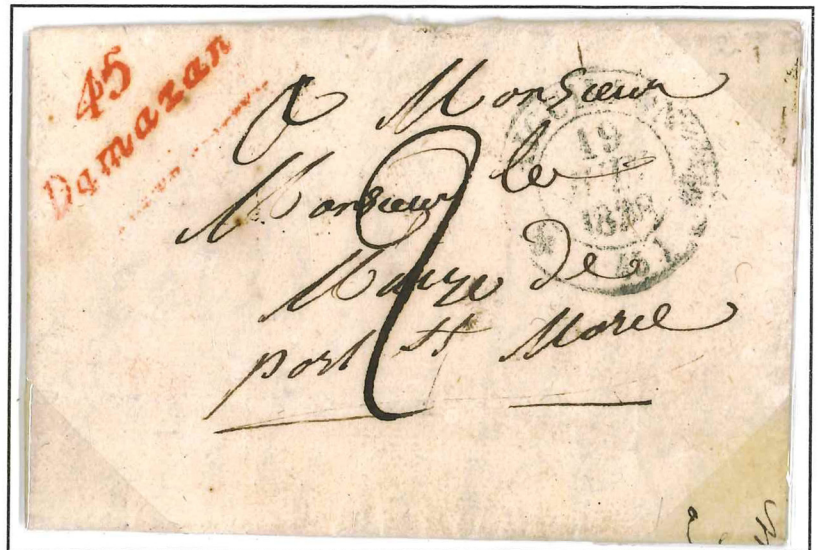 45
Damazan
A Monsieur
Monsieur le
Maire de
port St Marie
2
19
1838
(45)